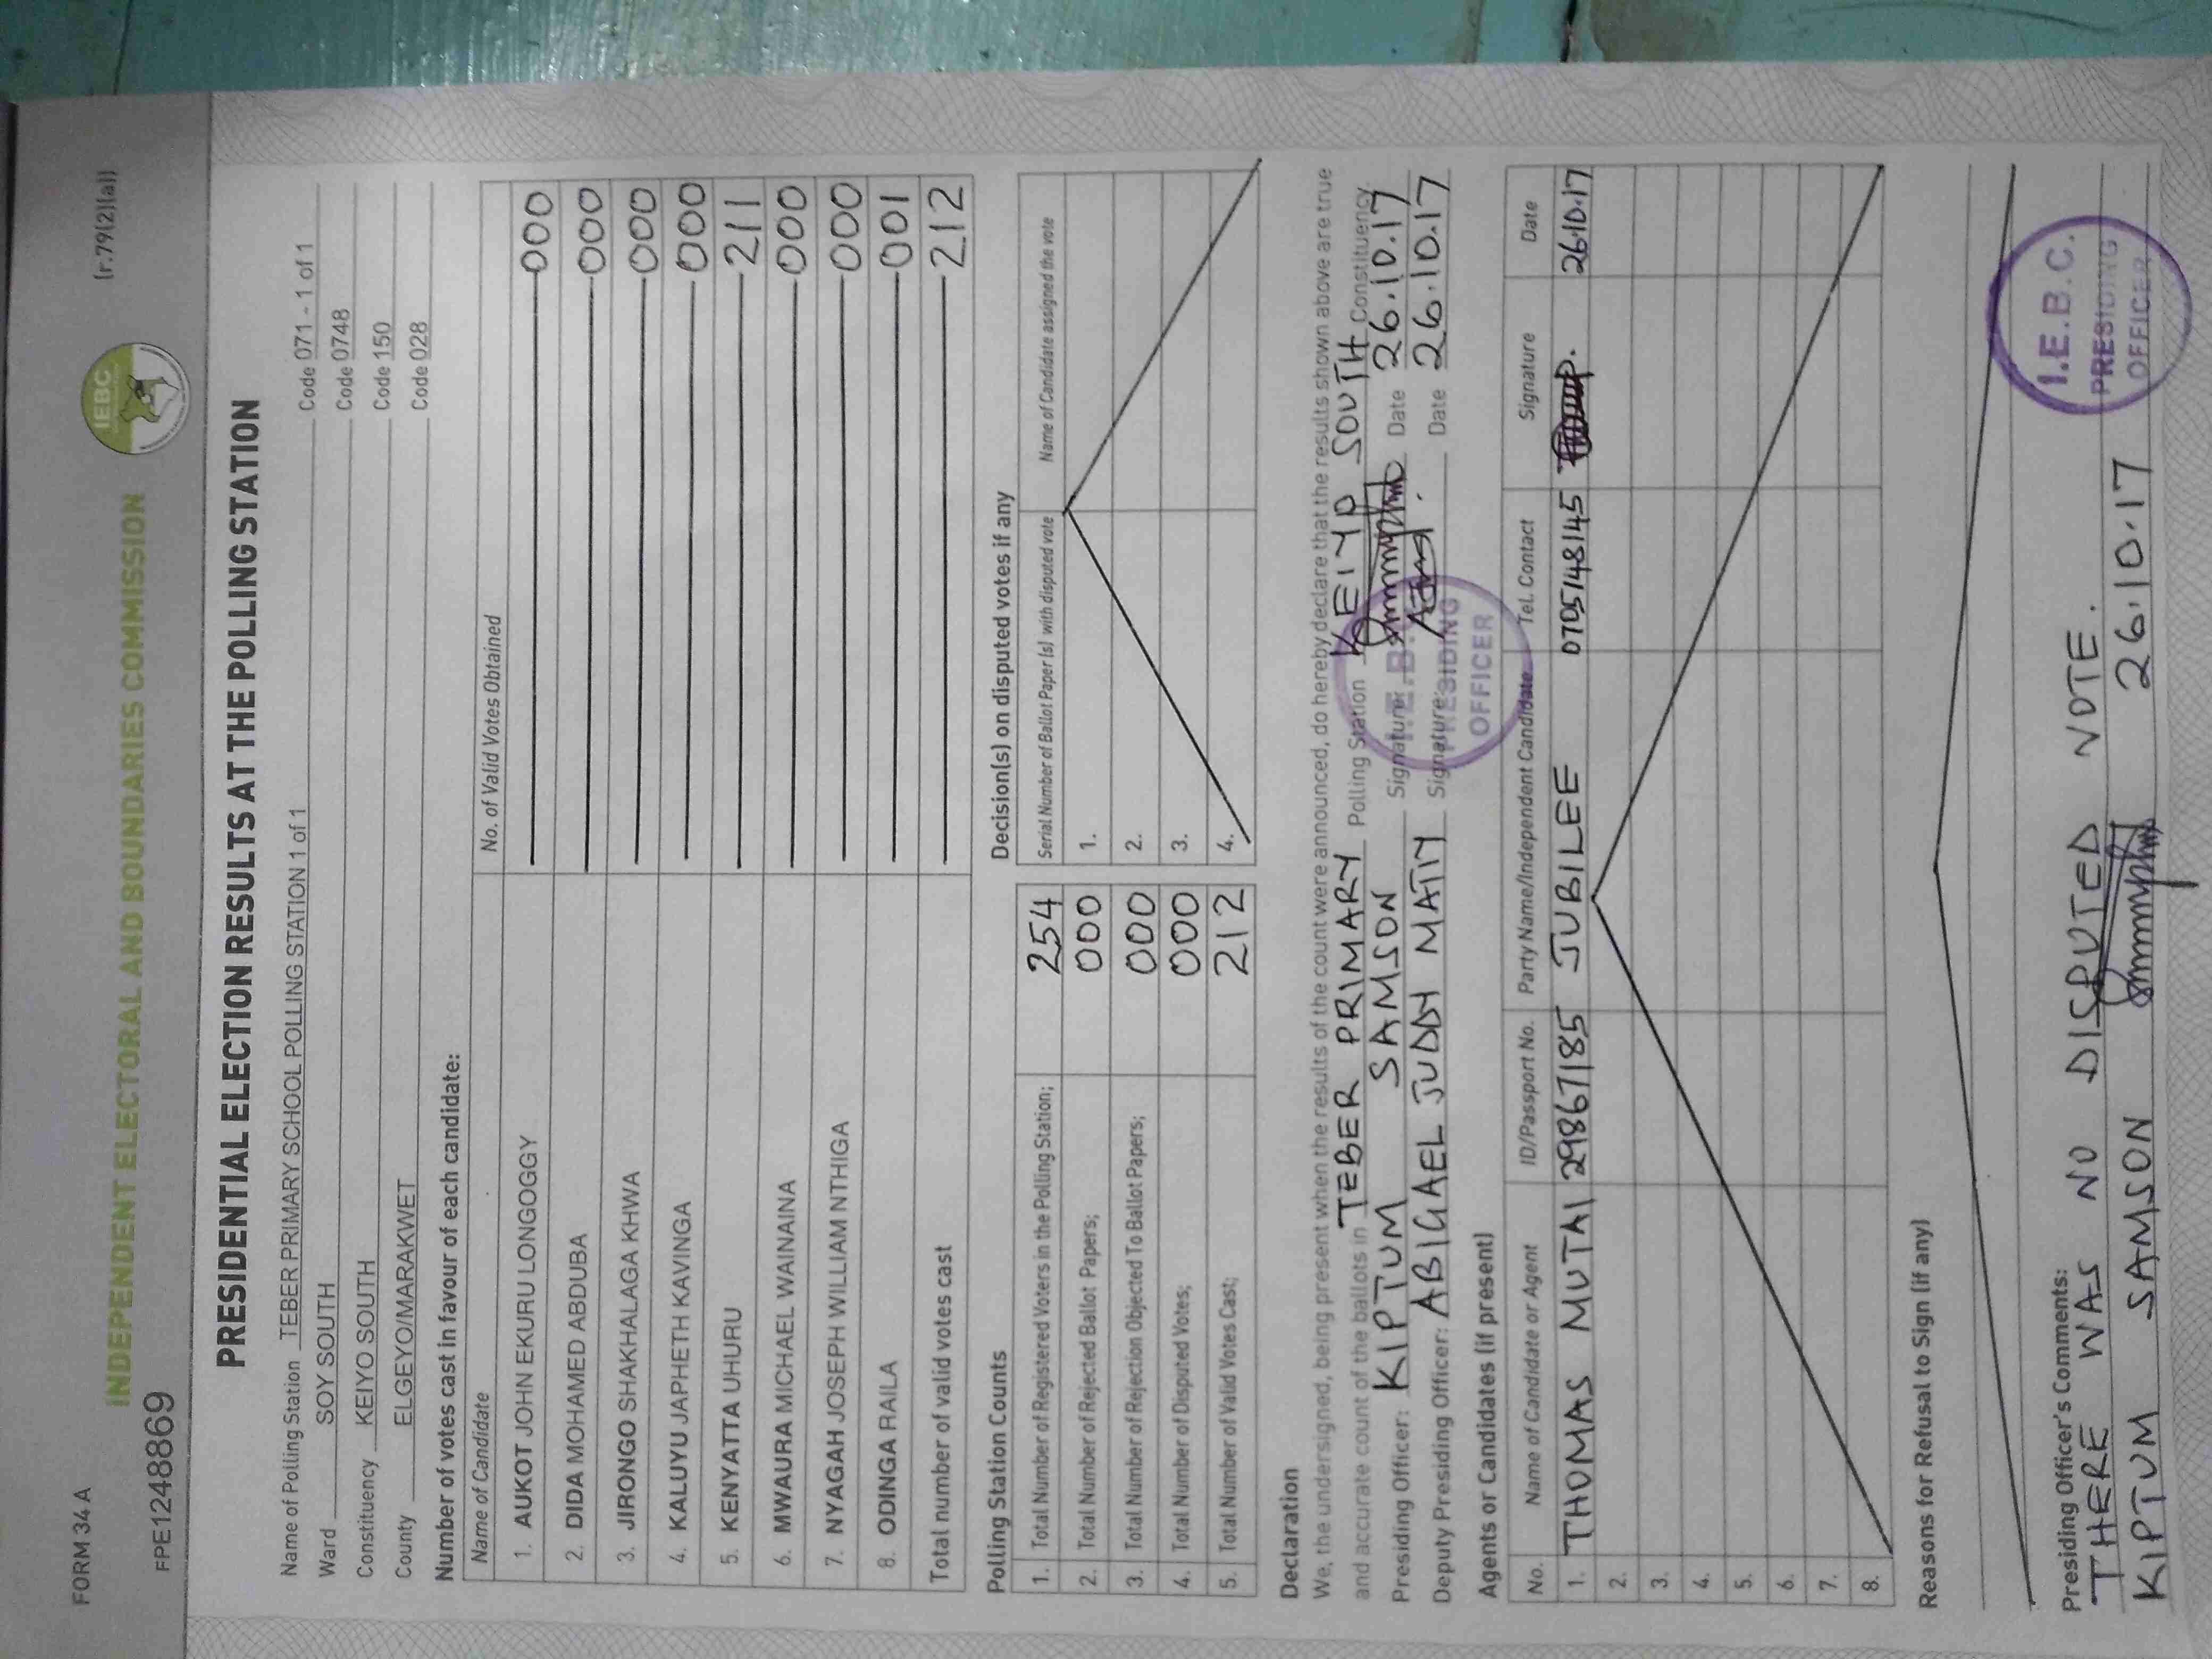 FORM 34 A
(r.79(2)(a))
FPE1248869
IEBC
INDEPENDENT ELECTORAL AND BOUNDARIES COMMISSION
PRESIDENTIAL ELECTION RESULTS AT THE POLLING STATION
Name of Polling Station TEBER PRIMARY SCHOOL POLLING STATION 1 of 1 Code 071 - 1 of 1
Ward SOY SOUTH Code 0748
Constituency KEIYO SOUTH Code 150
County ELGEYO/MARAKWET Code 028
Number of votes cast in favour of each candidate:
Name of Candidate No. of Valid Votes Obtained
1. AUKOT JOHN EKURU LONGOGGY 000
2. DIDA MOHAMED ABDUBA 000
3. JIRONGO SHAKHALAGA KHWA 000
4. KALUYU JAPHETH KAVINGA 000
5. KENYATTA UHURU 211
6. MWAURA MICHAEL WAINAINA 000
7. NYAGAH JOSEPH WILLIAM NTHIGA 000
8. ODINGA RAILA 001
Total number of valid votes cast 212
Polling Station Counts
1. Total Number of Registered Voters in the Polling Station; 254
2. Total Number of Rejected Ballot Papers; 000
3. Total Number of Rejection Objected To Ballot Papers; 000
4. Total Number of Disputed Votes; 000
5. Total Number of Valid Votes Cast; 212
Decision(s) on disputed votes if any
Serial Number of Ballot Paper (s) with disputed vote Name of Candidate assigned the vote
1.
2.
3.
4.
Declaration
We, the undersigned, being present when the results of the count were announced, do hereby declare that the results shown above are true
and accurate count of the ballots in TEBER PRIMARY Polling Station KEIYO SOUTH Constituency
Presiding Officer: KIPTUM SAMSON Signature: Date 26.10.17
Deputy Presiding Officer: ABIGAEL JUDDY MATIY Signature: Date 26.10.17
I.E.B.C.
PRESIDING
OFFICER
Agents or Candidates (if present)
No. Name of Candidate or Agent ID/Passport No. Party Name/Independent Candidate Tel. Contact Signature Date
1. THOMAS MUTAI 29867185 JUBILEE 0705148145 26.10.17
2.
3.
4.
5.
6.
7.
8.
Reasons for Refusal to Sign (if any)
Presiding Officer's Comments:
THERE WAS NO DISPUTED VOTE.
KIPTUM SAMSON 26.10.17
I.E.B.C.
PRESIDING
OFFICER